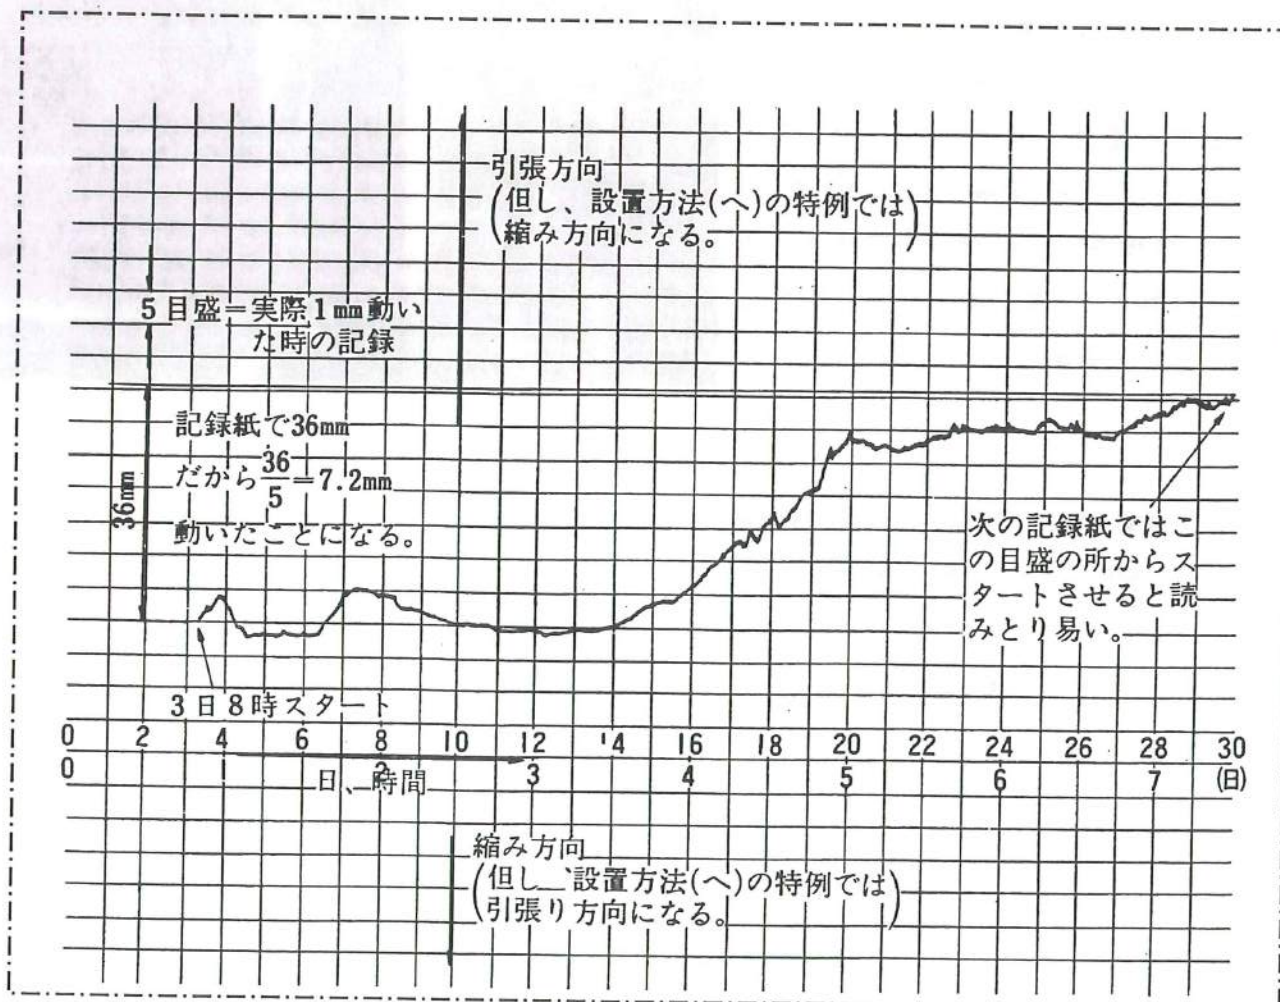 引張方向
(但し、設置方法(へ)の特例では
縮み方向になる。)
5目盛=実際1mm動い
た時の記録
記録紙で36mm
だから36/5=7.2mm
動いたことになる。
36mm
次の記録紙ではこ
の目盛の所からス
タートさせると読
みとり易い。
3日8時スタート
0 2 4 6 8 10 12 14 16 18 20 22 24 26 28 30
0 2 3 4 5 6 7 (日)
日、時間
縮み方向
(但し、設置方法(へ)の特例では
引張り方向になる。)